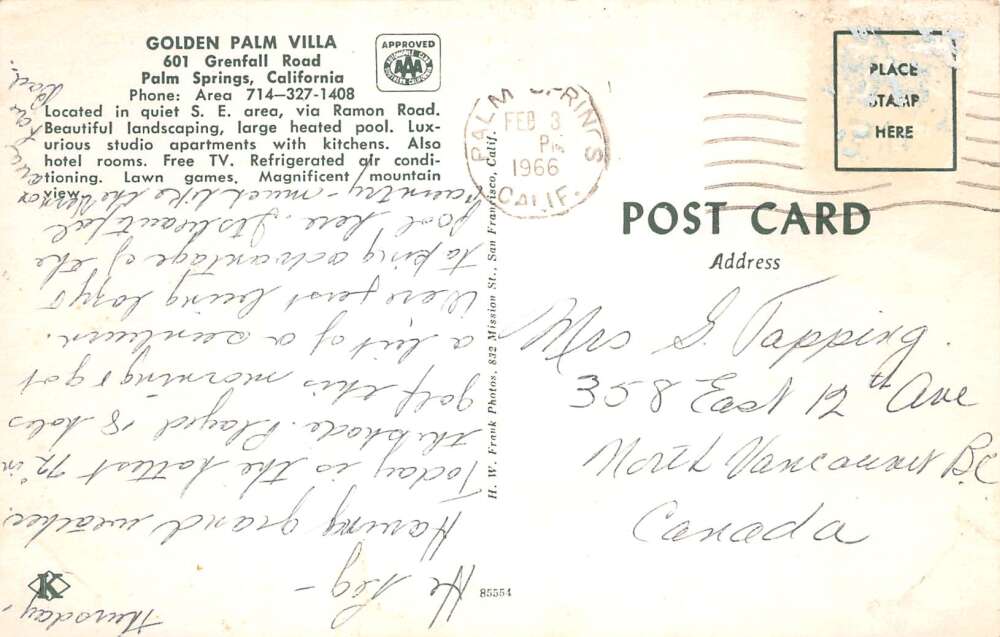 GOLDEN PALM VILLA
601 Grenfall Road
Palm Springs, California
Phone: Area 714—327-1408
Located in quiet S. E. area, via Ramon Road.
Beautiful landscaping, large heated pool. Lux-
urious studio apartments with kitchens. Also
hotel rooms. Free TV. Refrigerated air condi-
tioning. Lawn games. Magnificent mountain
view.
APPROVED
AAA
PALM SPRINGS
FEB 3
PM
1966
CALIF.
PLACE
STAMP
HERE
POST CARD
Address
Mrs G. Tapping.
358 East 12th Ave
North Vancouver B.C
Canada
H. W. Frank Photos, 832 Mission St., San Francisco, Calif.
85554
K
Thursday -
Reg -
Having grand weather.
Today is the hottest 72° in
the shade. Played 18 holes
golf this morning & got
a bit of a sunburn.
Were just being lazy &
taking advantage of the
pool here. Its beautiful
country - much like the Vernon